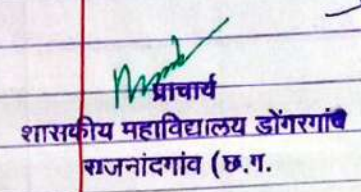 प्राचार्य
शासकीय महाविद्यालय डोंगरगांव
राजनांदगांव (छ.ग.